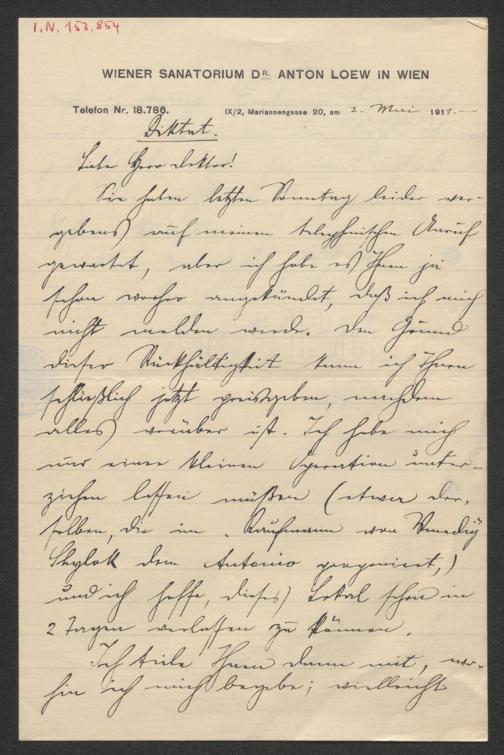 I.N. 153.854
WIENER SANATORIUM DR. ANTON LOEW IN WIEN
Telefon Nr. 18.786.
IX/2, Mariannengasse 20, am 2. Mai 1911.
Diktat.
Liebe Herr Doktor!
Sie haben letzten Sonntag leider ver-
gebens auf meinen telephonischen Anruf
gewartet, aber ich habe es Ihnen ja
schon vorher angekündet, daß ich mich
nicht melden werde. Den Grund
dieser Rückhältigkeit kann ich Ihnen
schließlich jetzt preisgeben, nachdem
alles vorüber ist. Ich habe mich
nur einer kleinen Operation unter-
ziehen lassen müßen (etwa der-
selben, die im „Kaufmann von Venedig
Shylok dem Antonio proponiert,)
und ich hoffe, dieses Lokal schon in
2 Tagen verlassen zu können.
Ich teile Ihnen dann mit, wo-
hin ich mich begebe; vielleicht